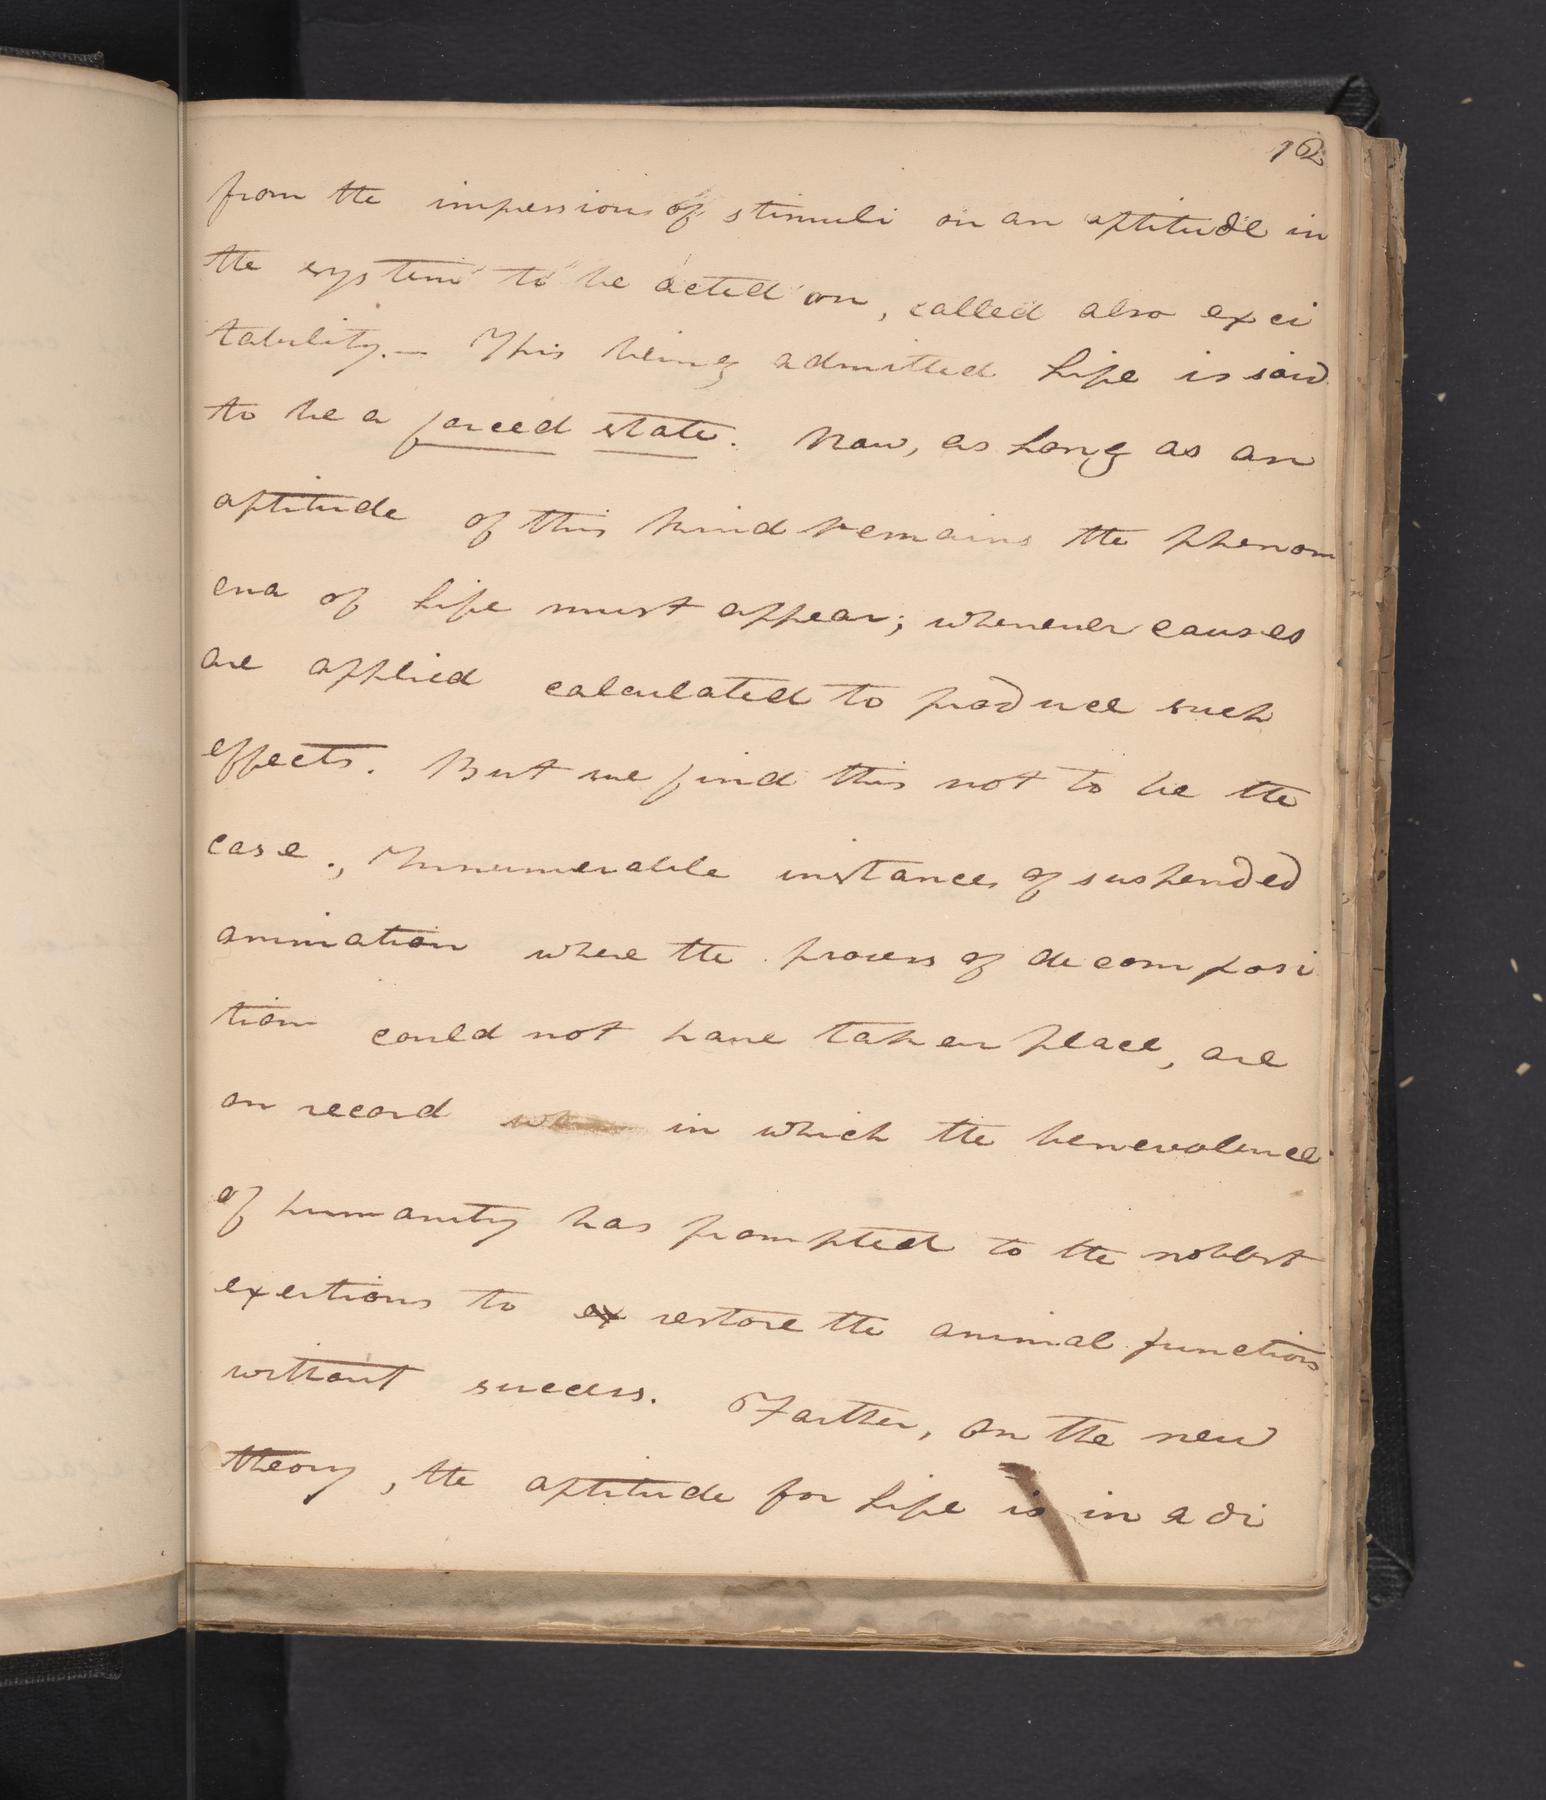 162
from the impressions of stimuli on an aptitude in
the system to be acted on, called also exci
tability.— This being admitted life is said
to be a forced state. Now, as long as an
aptitude of this kind remains the phenom
ena of life must appear; whenever causes
are applied calculated to produce such
effects. But we find this not to be the
case., Innumerable instances of suspended
animation where the process of decomposi
tion could not have taken place, are
on record in which the benevolence
of humanity has prompted to the noblest
exertions to ex restore the animal functions
without success. Farther, on the new
theory, the aptitude for life is in a di